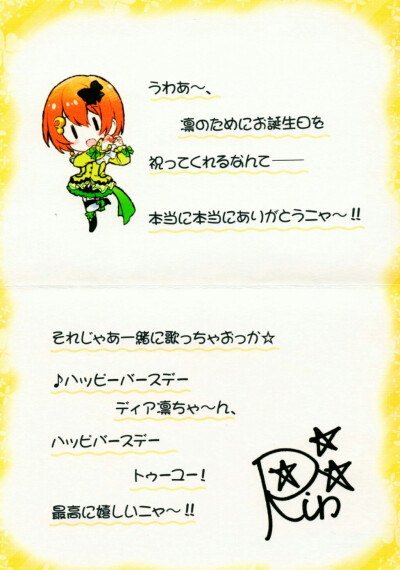 うわあ〜、
凛のためにお誕生日を
祝ってくれるなんて――
本当に本当にありがとうニャ〜!!
それじゃあ一緒に歌っちゃおっか☆
♪ハッピーバースデー
ディア凛ちゃ〜ん、
ハッピバースデー
トゥーユー!
最高に嬉しいニャ〜!!
Rin